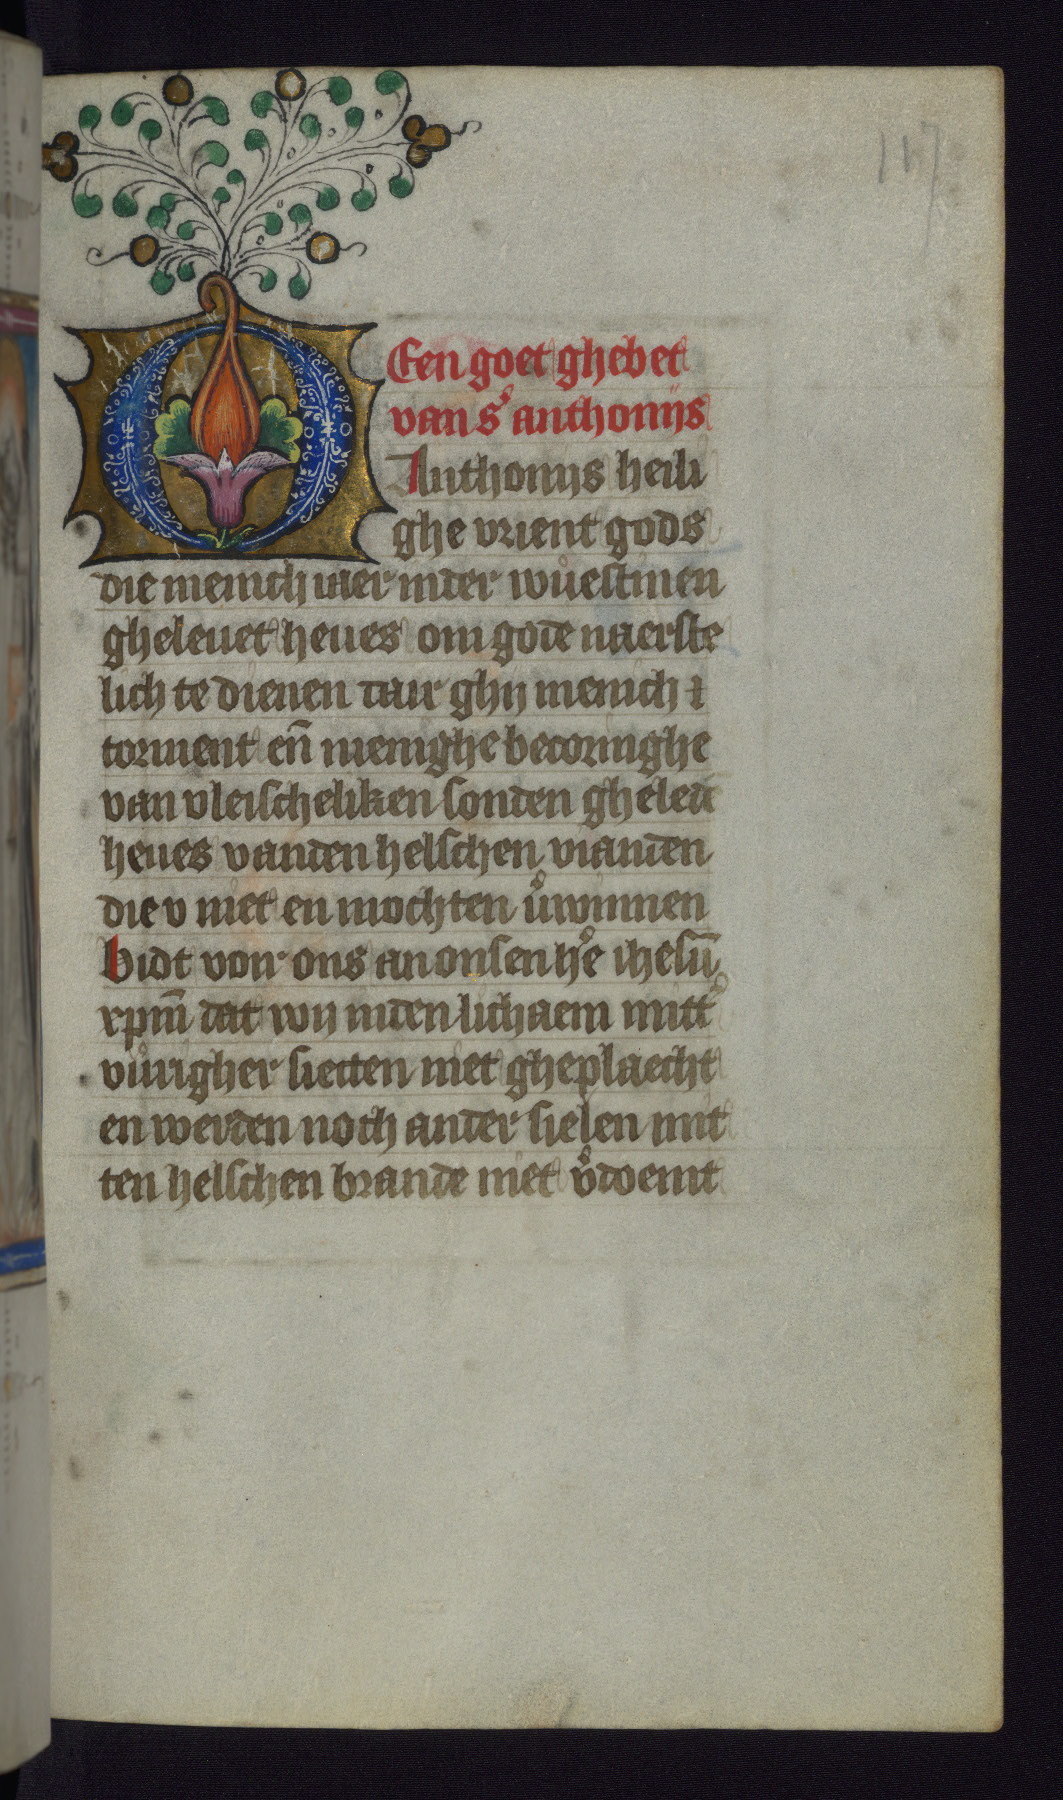 147
Een goet ghebet
van sͬ anthonijs
O Anthonijs heili
ghe vrient gods
die menich iaer inder wůestinen
gheleuet heues om gode naerste
lich te dienen dair ghij menich
torment en̄ menighe becoringhe
van vleischeliken sonden gheledē
heues vanden helschen vianden
die v niet en mochten v̉winnen
bidt voir ons an onsen he̊ ihesū
xpm̄ dat wij inden lichaem mitt̉
vůrigher siecten niet gheplaecht
en werden noch ander sielen mit
ten helschen brande niet v̉doemt